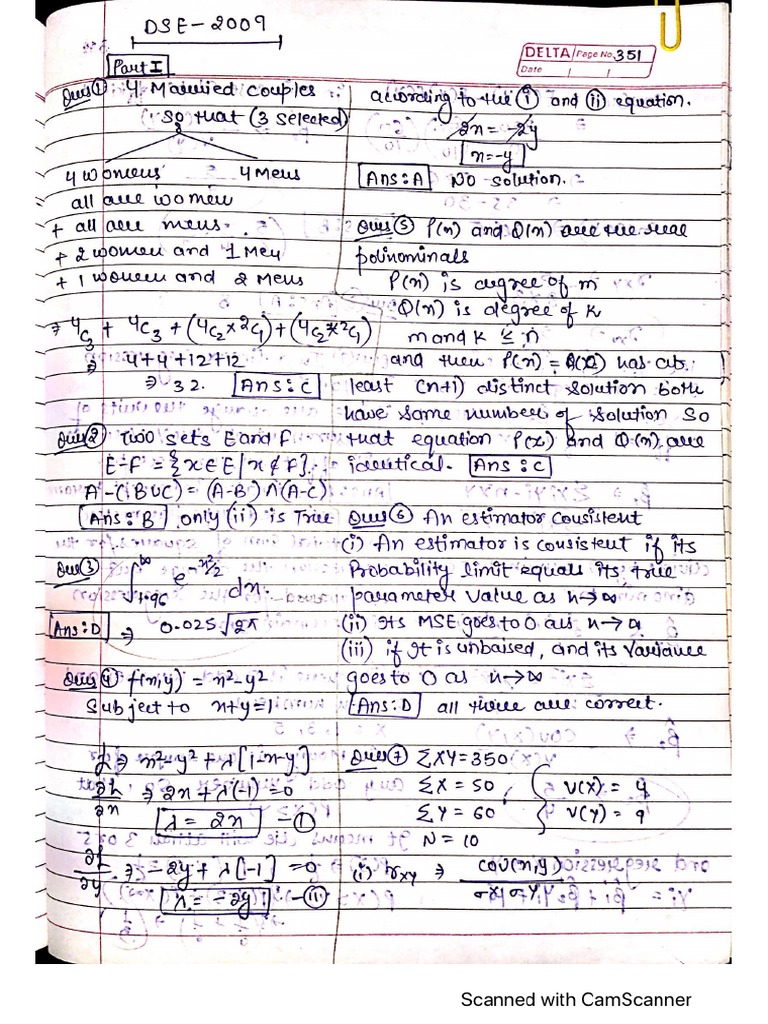 DSE-2009
DELTA Page No. 351
Date
Part I
Ques ① 4 Married Couples
So that (3 selected)
4 womens 4 Mens
all are women
+ all are mens.
+ 2 women and 1 Men
+ 1 women and 2 Mens
⇒ 4C3 + 4C3 + (4C2×2C1) + (4C2×2C1)
⇒ 4+4+12+12
⇒ 32. Ans: C
Ques 2 Two sets E and F
E-F = {x∈E | x∉F}.
A-(BUC) = (A-B)∧(A-C)
Ans: B only (ii) is True
Que ③ ∫1.96^∞ e^-x²/2 dx.
Ans: D ⇒ 0.025√2π
Ques ④ f(x,y) = x²-y²
Subject to x+y=1
L ⇒ x²-y²+λ[1-x-y]
∂L/∂x ⇒ 2x+λ(-1)=0
λ = 2x - ①
∂L/∂y ⇒ -2y+λ[-1] = 0
λ = -2y - ⑪
according to the ① and ⑪ equation.
2x = -2y
x=-y
Ans: A No solution.
Ques ⑤ P(x) and Q(x) are the real
polinominals
P(x) is degree of m
Q(x) is degree of k
m and k ≤ n
and then P(x) = Q(x) has at
least (n+1) distinct solution both
have same number of solution So
that equation P(x) and Q(x) are
identical. Ans: C
Ques ⑥ An estimator consistent
(i) An estimator is consistent if its
Probability limit equals its true
parameter value as n→∞
(ii) Its MSE goes to 0 as n→∞
(iii) if It is unbaised, and its Variance
goes to 0 as n→∞
Ans: D all three are correct.
Ques ⑦ ΣXY=350
ΣX = 50, V(X) = 4
ΣY = 60 V(Y) = 9
N = 10
(i) rxy ⇒ cov(x,y)/σx σy
Scanned with CamScanner